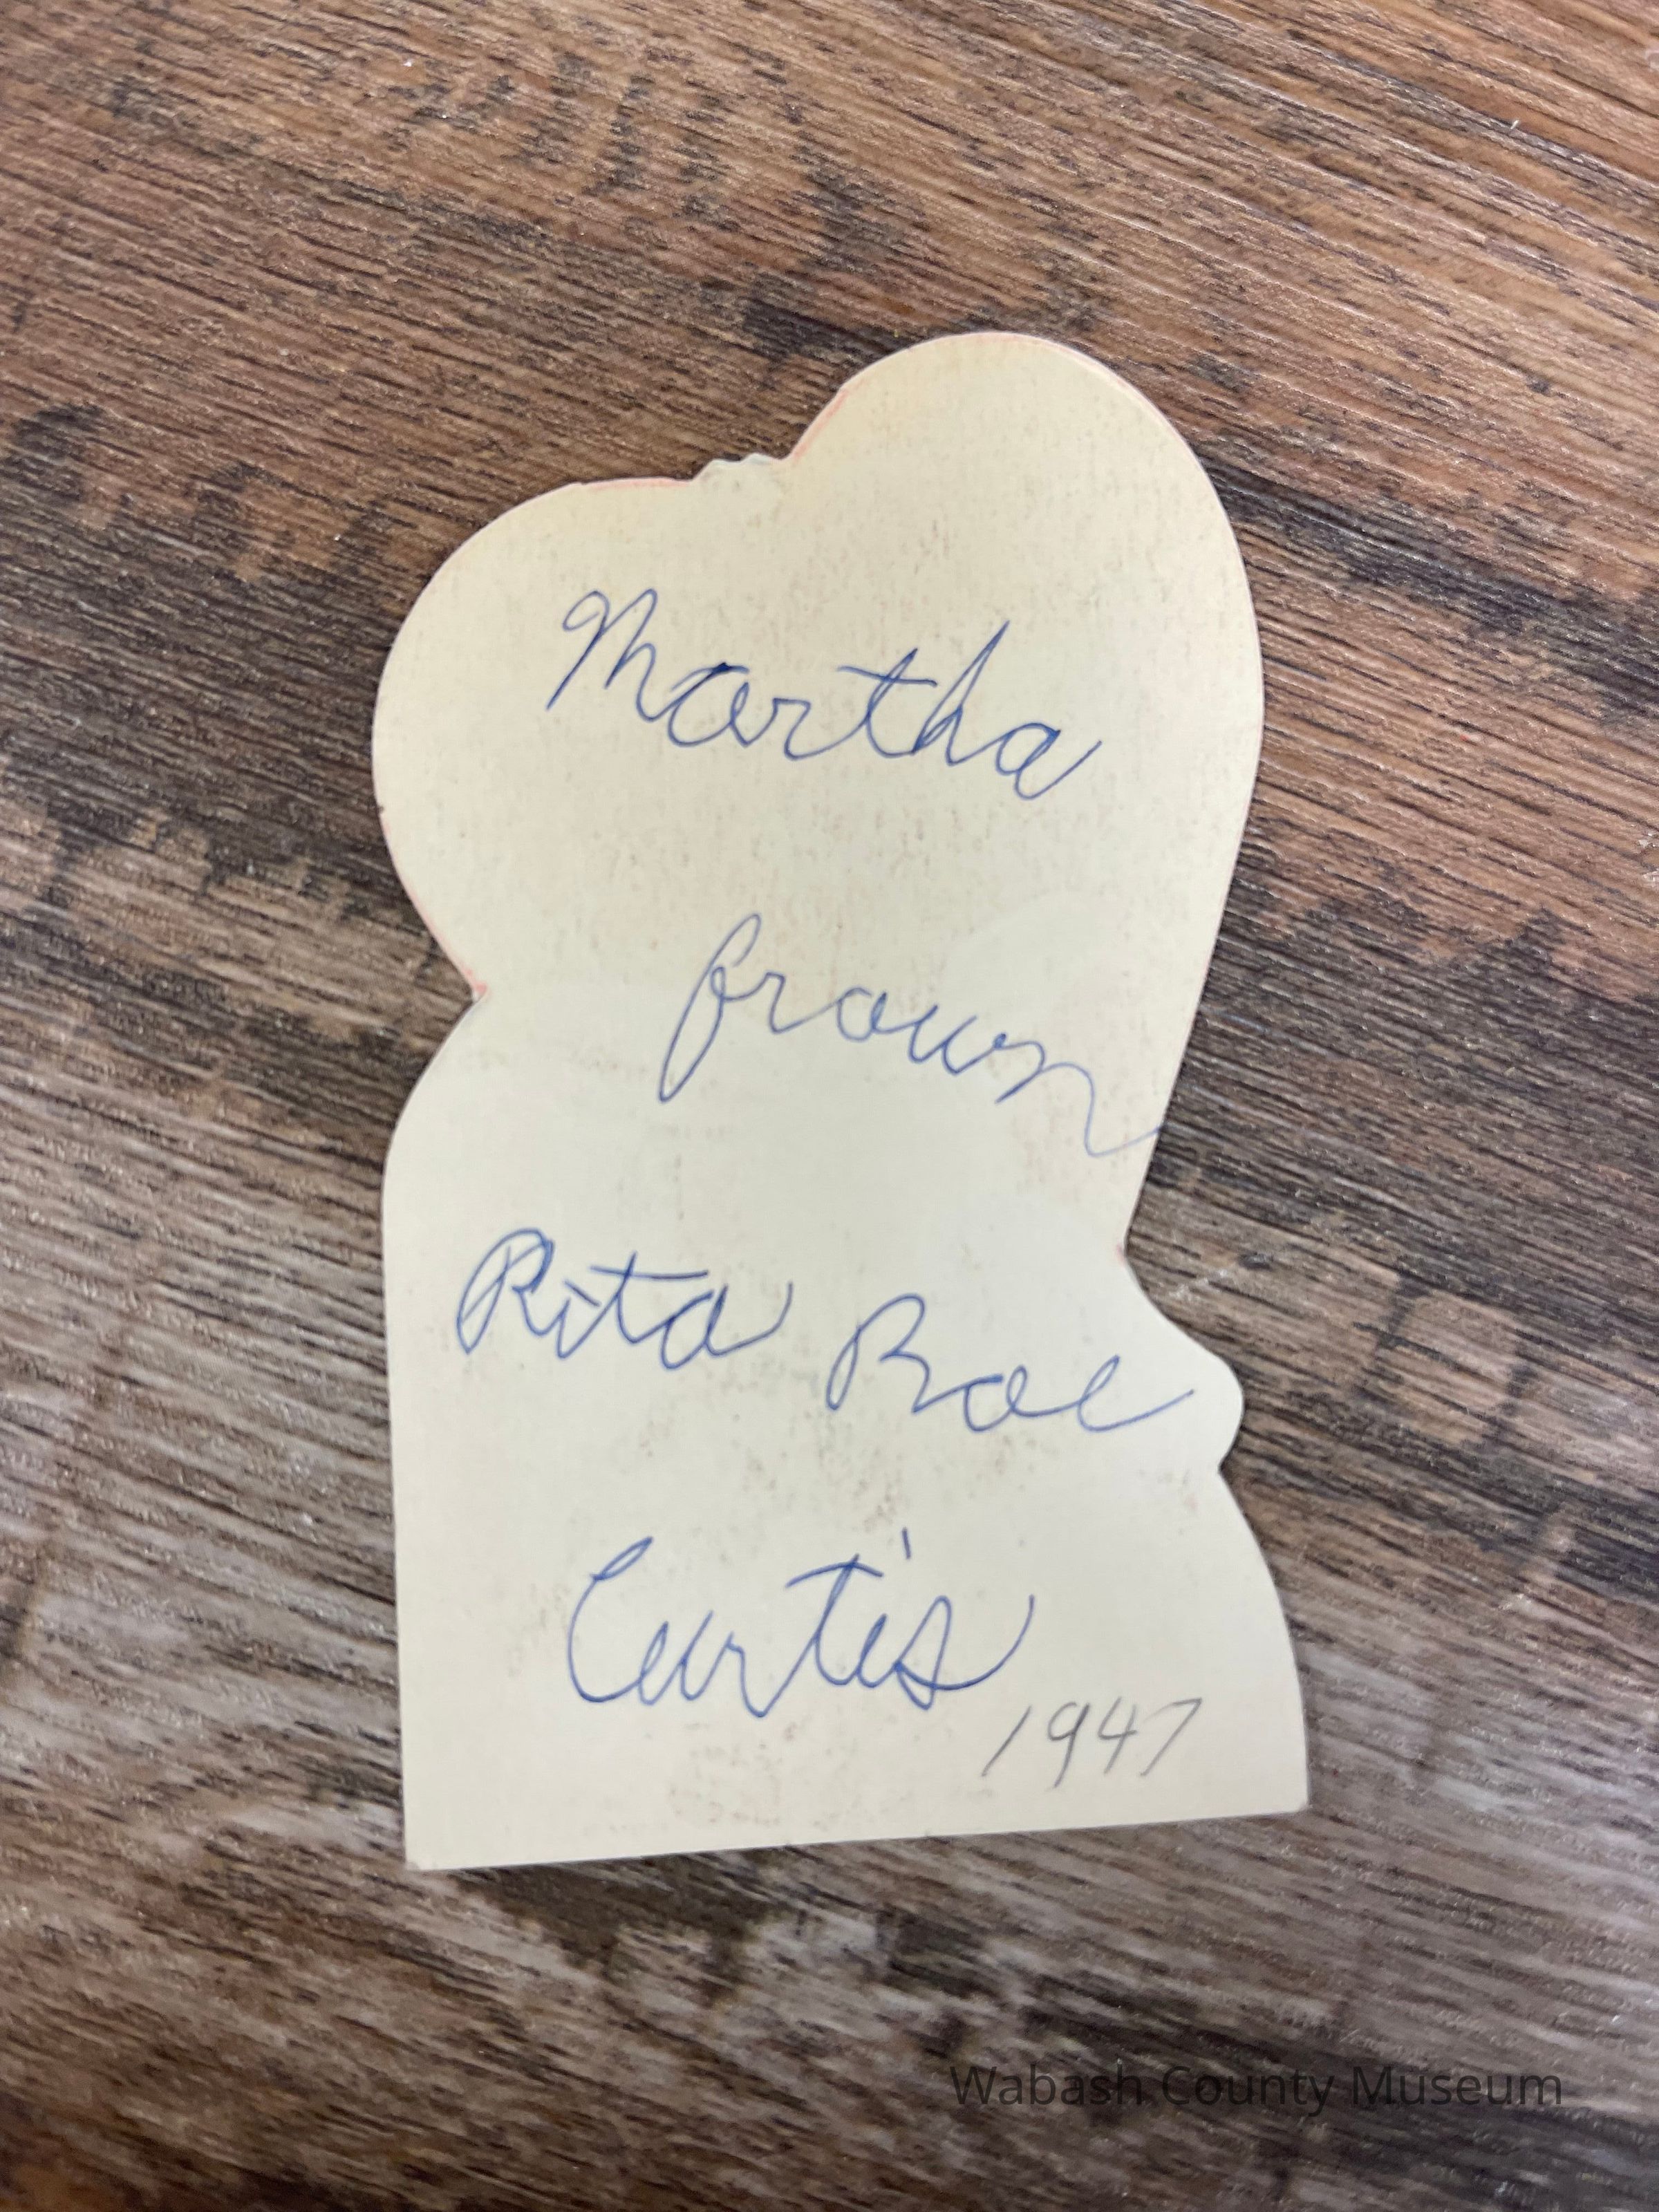 Martha
frown
Rita Rae
Curtis
1947
Wabash County Museum